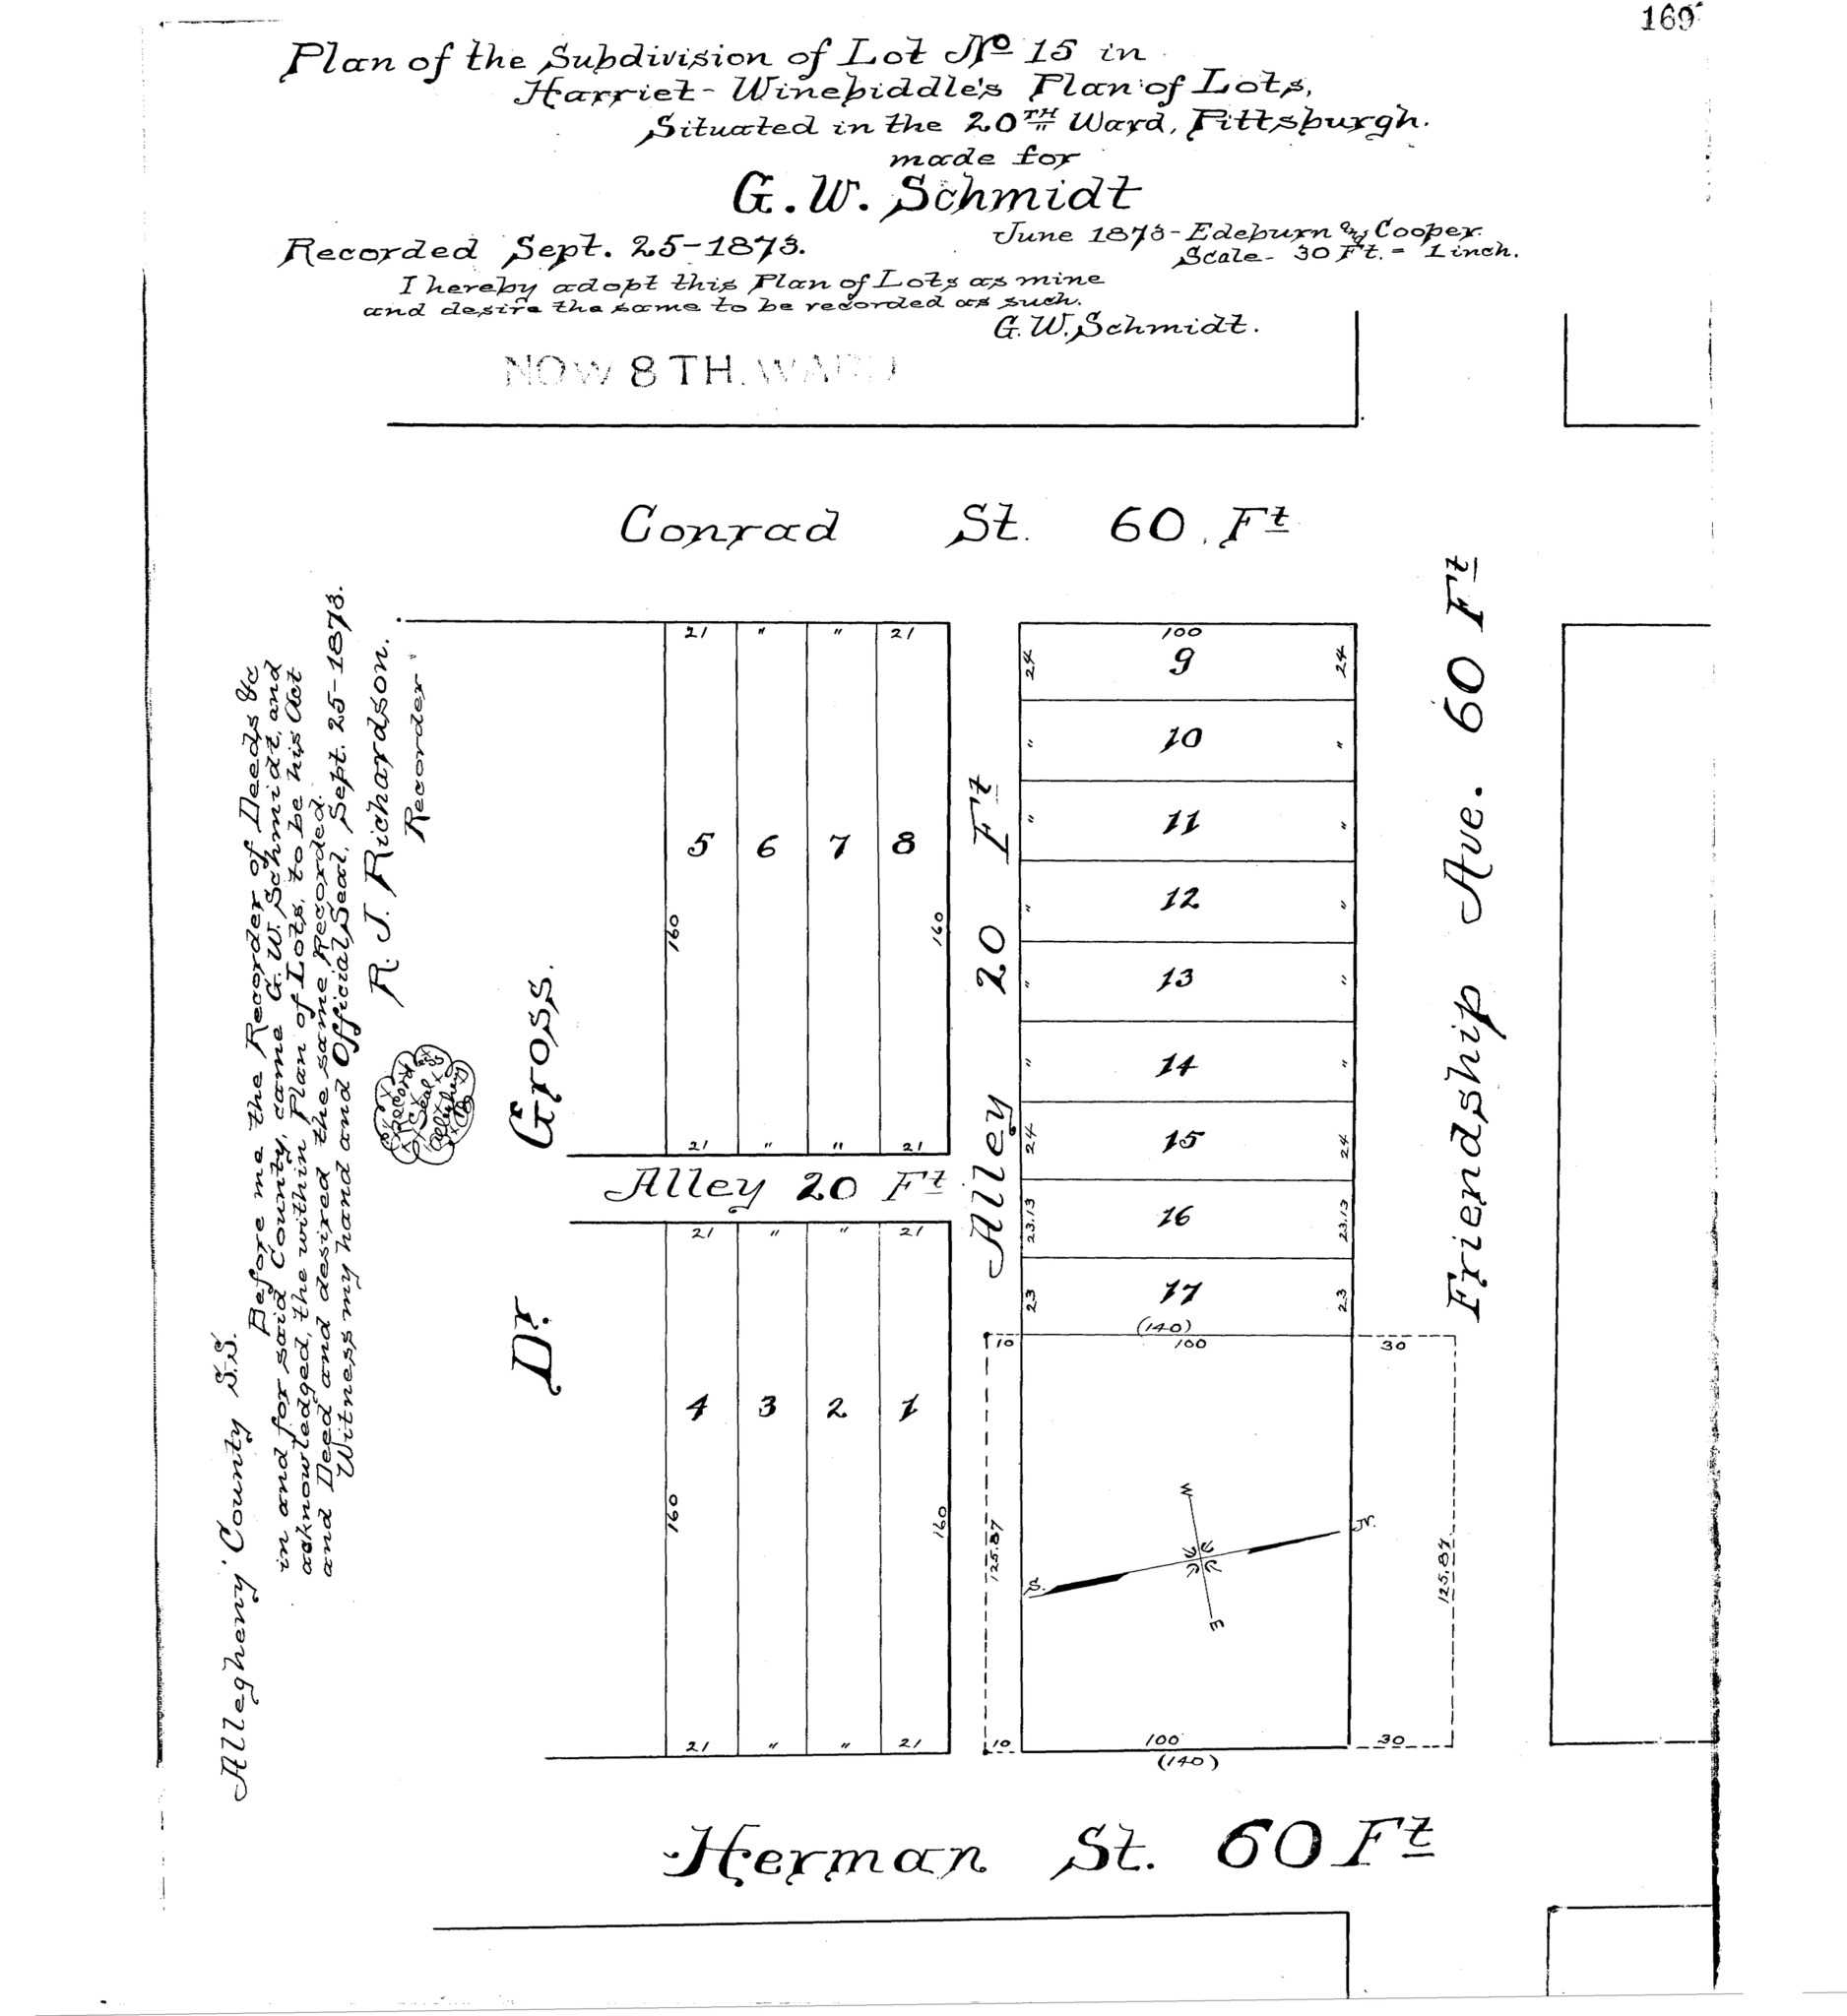 169
Plan of the Subdivision of Lot No 15 in
Harriet-Winebiddle's Plan of Lots,
Situated in the 20TH Ward, Pittsburgh.
made for
G. W. Schmidt
June 1873-Edeburn & Cooper.
Recorded Sept. 25-1873.
Scale- 30 Ft. = 1 inch.
I hereby adopt this Plan of Lots as mine
and desire the same to be recorded as such.
G. W. Schmidt.
NOW 8TH. WARD
Conrad St. 60 Ft
21 " " 21
100
24 9 24
" 10 "
" 11 "
5 6 7 8
" 12 "
160 160
" 13 "
" 14 "
24 15 24
21 " " 21
Alley 20 Ft
Alley 20 Ft
Friendship Ave. 60 Ft
23.13 16 23.13
21 " " 21
23 17 23
(140)
10 100 30
4 3 2 1
160 160
125.87 125.87
W
S. N.
E
21 " " 21
10 100 30
(140)
Herman St. 60 Ft
Dr. Gross.
Allegheny County S.S.
Before me the Recorder of Deeds &c
in and for said County, came G. W. Schmidt, and
acknowledged, the within Plan of Lots, to be his Act
and Deed and desired the same Recorded.
Witness my hand and Official Seal, Sept. 25-1873.
R. J. Richardson.
Recorder
Record
Seal